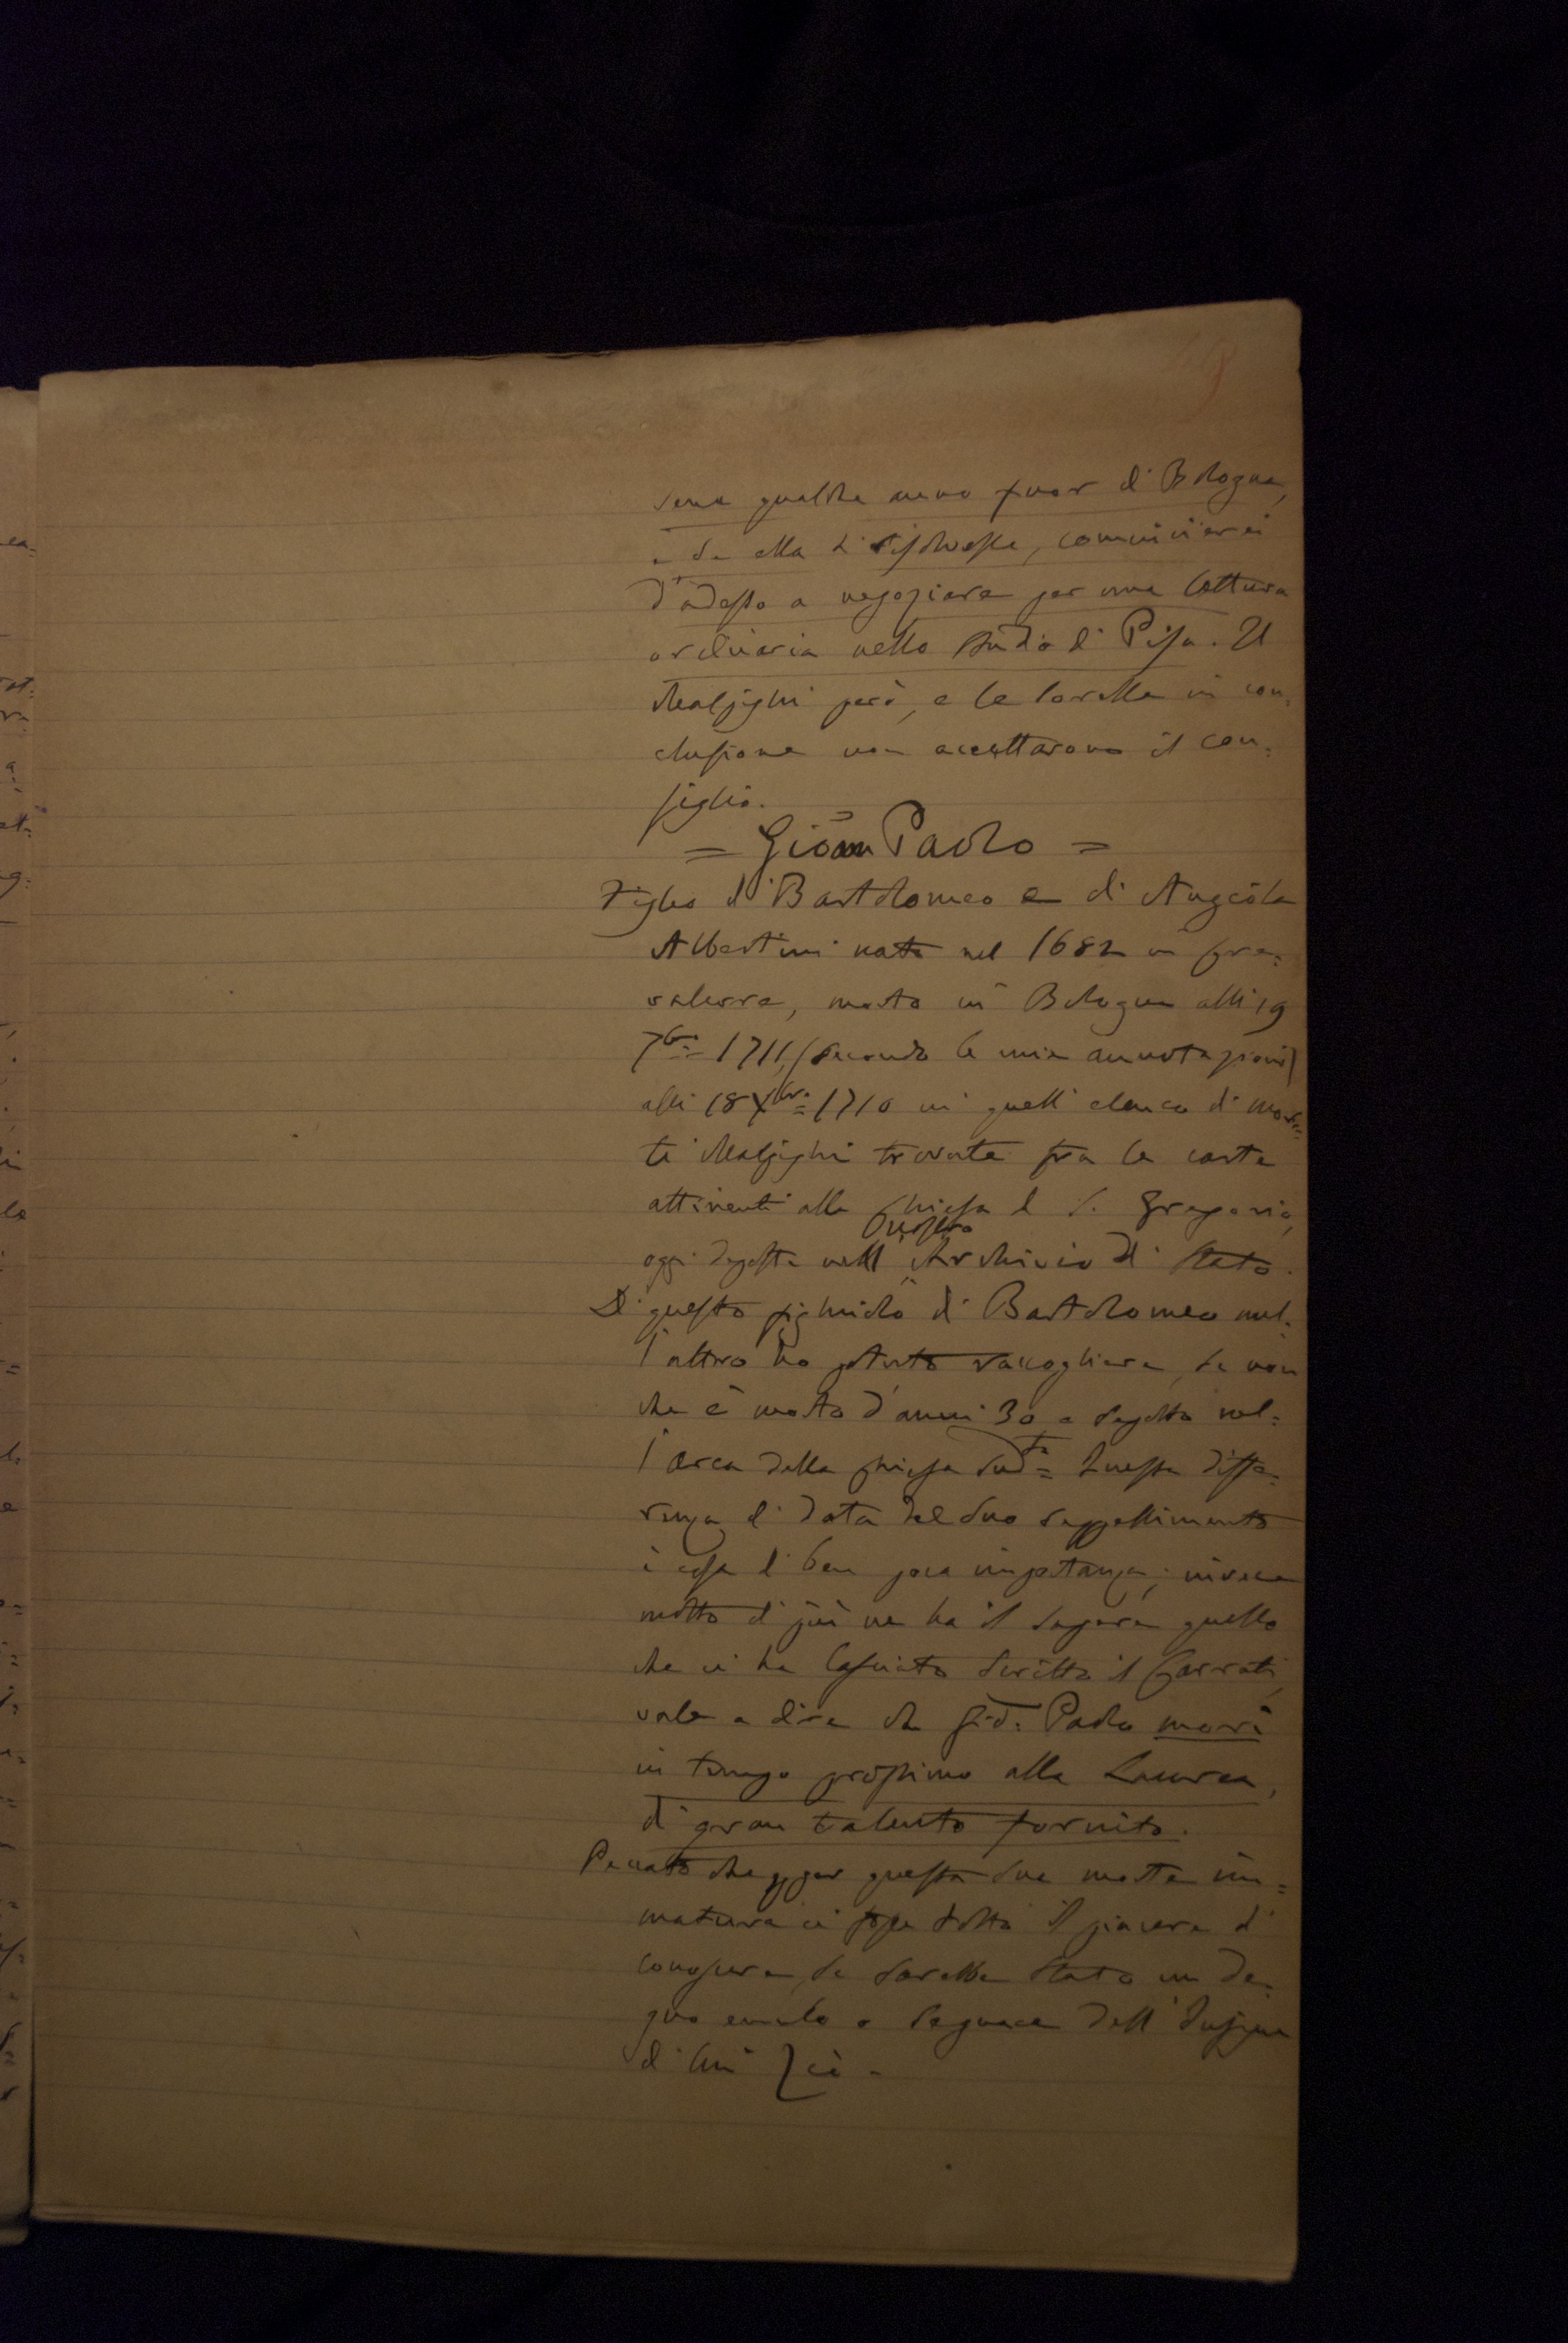 19
sene qualche anno fuor di Bologna,
e se ella si risolvesse, comincierei
d'adesso a negoziare per una lettura
ordinaria nello Studio di Pisa. Il
Malpighi però, e le sorelle in con=
clusione non accettarono il con=
siglio.
= Gioan Paolo =
Figlio di Bartolomeo e di Angiola
Albertini nato nel 1682 in Cre=
valcore, morto in Bologna alli 19
7bre 1711, (secondo le mie annotazioni)
alli 18 Xbre 1710 in quell'elenco di mor=
ti Malpighi trovate fra le carte
attinenti alla Chiesa di S. Gregorio,
nostro
oggi deposte nell' Archivio di Stato.
Di questo figliuolo di Bartolomeo nul=
l'altro ho potuto raccogliere, se non
che è morto d'anni 30 e sepolto nel=
l'arca della Chiesa sudta= Questa diffe=
renza di data del suo seppellimento
è cosa di ben poca importanza; invece
molto di più ne ha il sapere quello
che ci ha lasciato scritto il Carrati,
vale a dire che Gio: Paolo morì
in tempo prossimo alla Laurea,
di gran talento fornito.
Peccato che per questa sua morte im=
matura ci fosse tolto il piacere di
conoscere se sarebbe stato un de=
gno emulo o seguace dell'Insigne
di lui Zio.